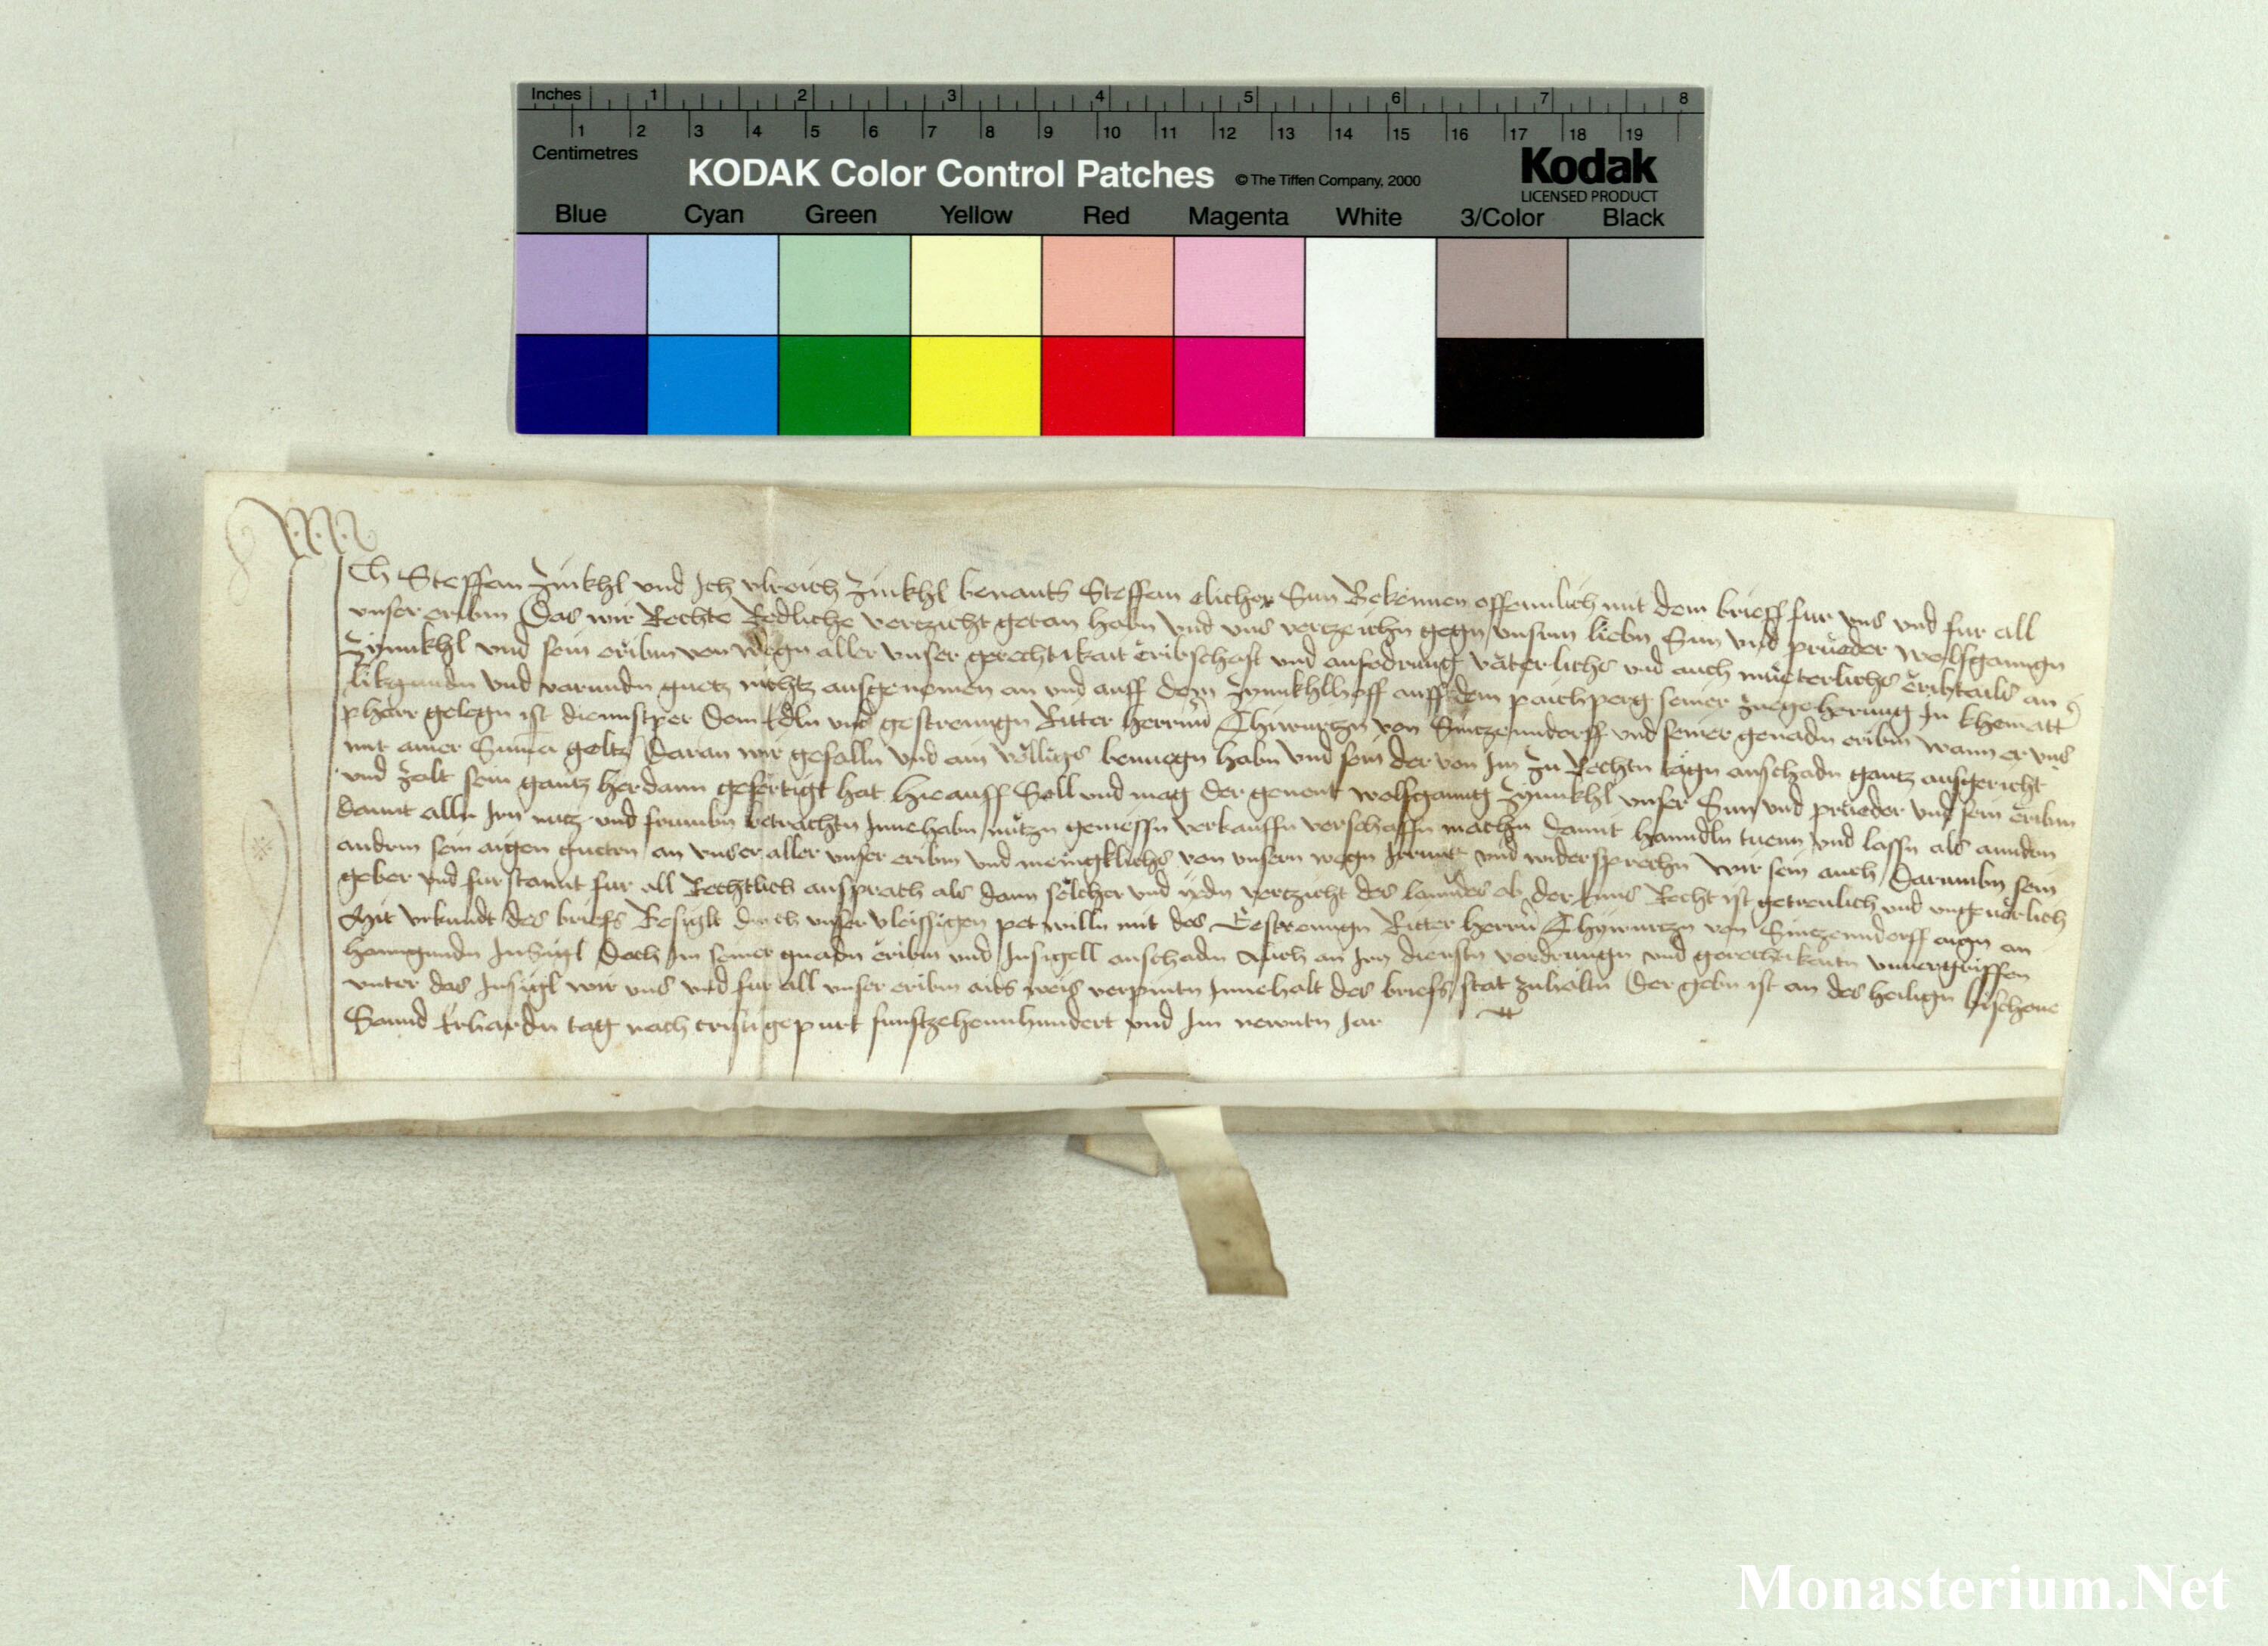 Inches 1 2 3 4 5 6 7 8
1 2 3 4 5 6 7 8 9 10 11 12 13 14 15 16 17 18 19
Centimetres
KODAK Color Control Patches © The Tiffen Company, 2000 Kodak
LICENSED PRODUCT
Blue Cyan Green Yellow Red Magenta White 3/Color Black
ICh Steffan Zinkhl vnd Ich vlreich Zinkhl benants Steffan elicher Sun Bekennen offennlich mit dem brieff fur vns vnd fur all
vnser eribm Das wir Rechte Redliche vertzicht getan habn vnd vns vertzeichn gegn vnsrm liebn Sun vnd prueder wolfganngn
Zynnkhl vnd sein eribm von wegn aller vnser gerechtikait eribschaft vnd anfodrung väterlichs vnd auch müeterlichs eribtails an
likgundn vnd varundn guetz nichtz ausgenomen an vnd auff dem Zynnkhlhoff auff dem paichperg seiner zuegeherung In khematt
pharr gelegn ist diennstper dem Edln vnd gestrenngn Ritter herrnn von Sintzenndorff vnd seiner genadn eribm wann er vns
mit ainer Suma geltz daran wir gefalln vnd ain völligs benuegn habn vnd sein der von im zu Rechtn tägn anschadn gantz ausgericht
vnd zalt sein gantz herdann gefertigt hat hieauff Soll vnd mag der genent wolfganng Zynnkhl vnser Sun vnd prueder vnd sein eribm
damit alln Irn nutz vnd frumbn betrachtn Innehabn nützn geniessn verkauffn verschaffn machn damit hanndln tuenn vnd lassn als anndern
andrm sein aigen guetrn an vnser aller vnser eribm vnd menigklichs von vnsern wegn Irrung vnd widersprechn wir sein auch darumbn sein
geber vnd furstannt fur all Rechtlich ansprach als dann solcher vnd yedn vertzicht des lanndes ob der Enns Recht ist getreulich vnd vngeuerlich
Mit vrkundt des briefs Besiglt durch vnser vleissigen pet willn mit des Gestrenngn Ritter herrnn von Sintzenndorff aign an
hanngundn Insigl Doch im seiner gnadn eribm vnd Insigell anschadn Auch an Irn dienstn vordrungn vnd gerechtikeitn vnuergriffen
vnter das Insigl wir vns vnd fur all vnser eribm verpintn Innehalt des briefs stat zuhaltn Der gebn ist an des heilign bischoue
Sannd Erhardn tag nach cristi gepurt funftzehennhundert vnd Im newntn Jar
Monasterium.Net